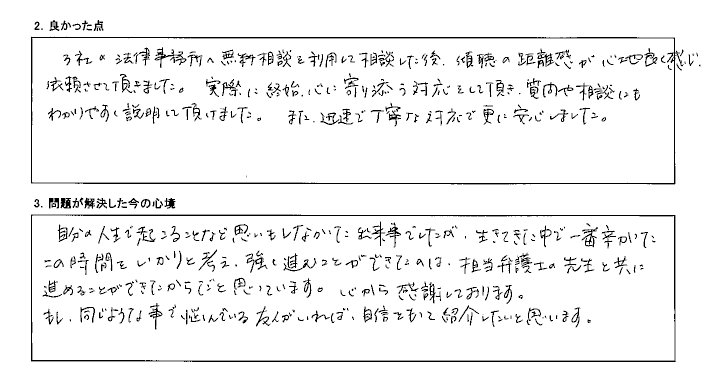 2. 良かった点
3社の法律事務所へ無料相談を利用して相談した後、傾聴の距離感が心地良く感じ、
依頼させて頂きました。実際に終始、心に寄り添う対応をして頂き、質問や相談にも
わかりやすく説明して頂けました。また、迅速で丁寧な対応で更に安心しました。
3. 問題が解決した今の心境
自分の人生で起こることなど思いもしなかった出来事でしたが、生きてきた中で一番辛かった
この時間をしっかりと考え、強く進むことができたのは、担当弁護士の先生と共に
進めることができたからだと思っています。心から感謝しております。
もし、同じような事で悩んでいる友人がいれば、自信をもって紹介したいと思います。